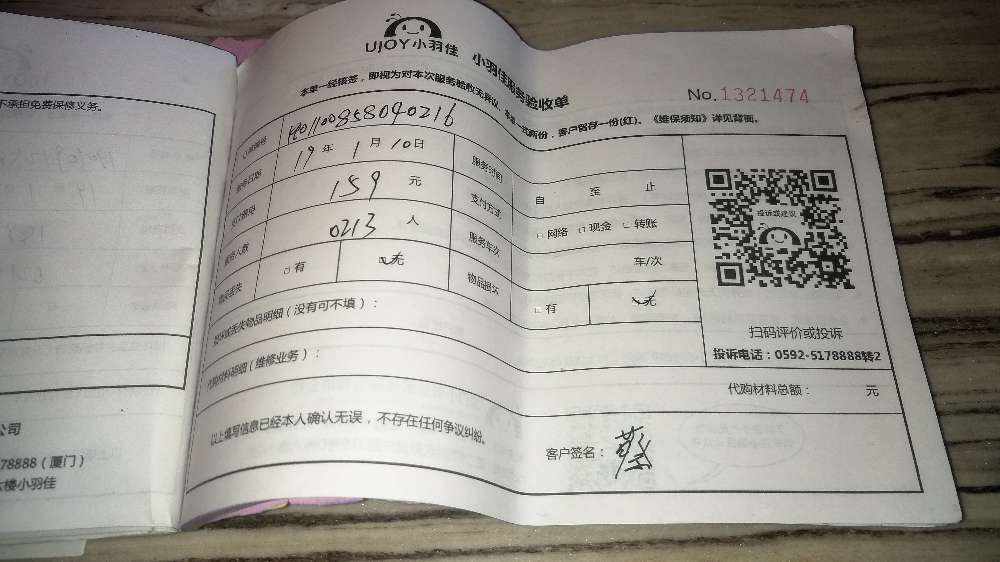 UJOY小羽佳 小羽佳服务验收单
本单一经接签，即视为对本次服务验收无异议，本单一式两份，客户留存一份(红)。《维保须知》详见背面。
No.1321474
19年1月10日 服务时间 自 至 止
159 元 支付方式 网络 现金 转账
0213 人 服务车次 车/次
有 无 物品损坏 有 无
物品明细（没有可不填）：
代购材料明细（维修业务）：
代购材料总额： 元
投诉或建议
扫码评价或投诉
投诉电话：0592-5178888转2
以上填写信息已经本人确认无误，不存在任何争议纠纷。
客户签名：
不承担免费保修义务。
公司
78888（厦门）
楼小羽佳